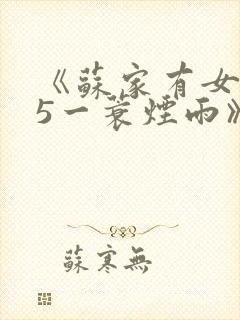 《蘇家有女
5一蓑煙雨》
蘇寒無